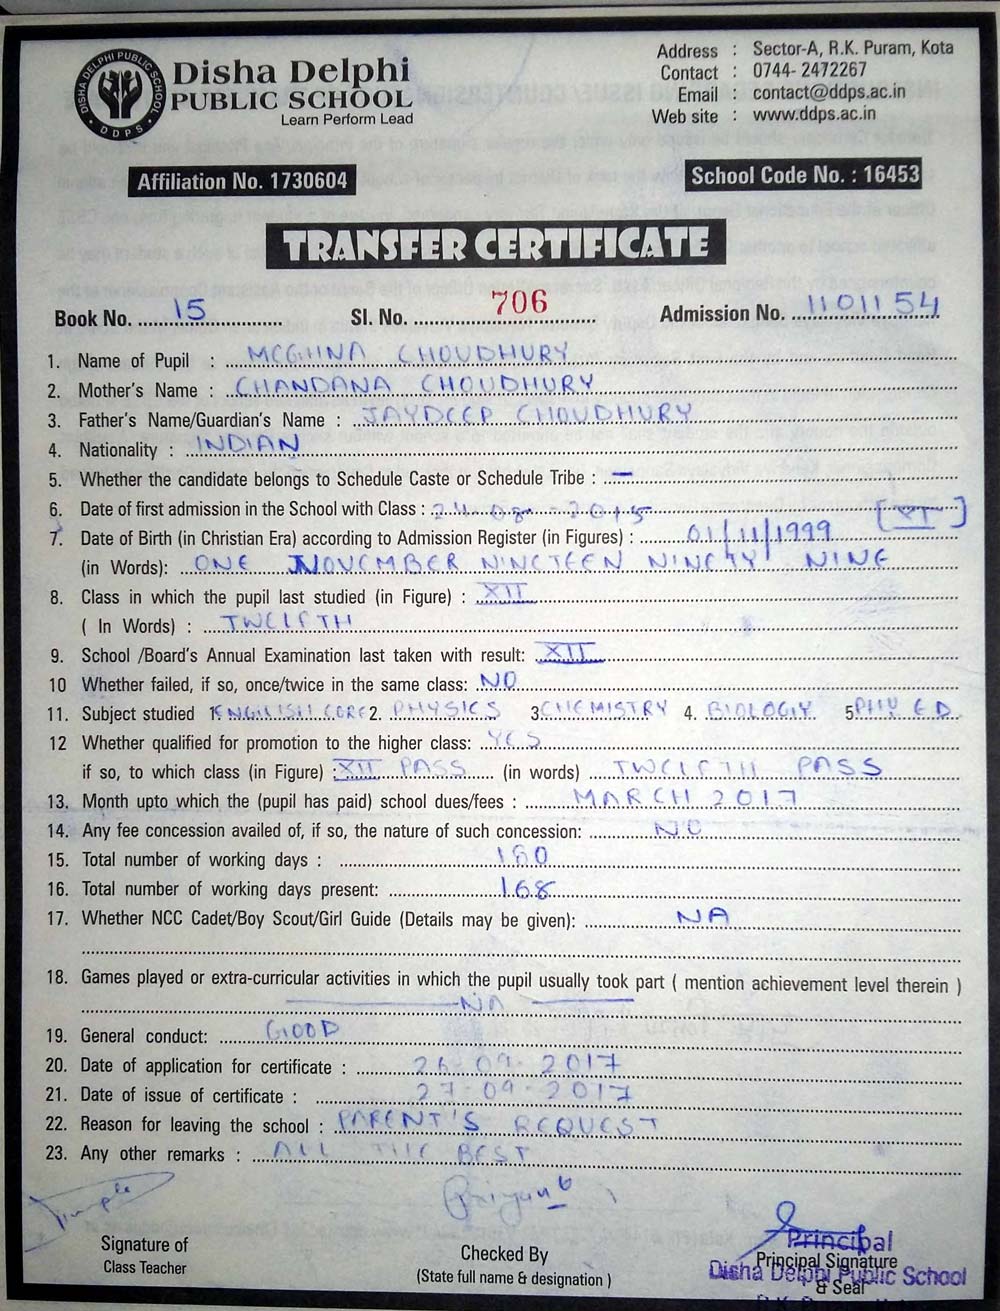 DISHA DELPHI PUBLIC SCHOOL
DDPS
Disha Delphi
PUBLIC SCHOOL
Learn Perform Lead
Address : Sector-A, R.K. Puram, Kota
Contact : 0744- 2472267
Email contact@ddps.ac.in
Web site : www.ddps.ac.in
Affiliation No. 1730604
School Code No. : 16453
TRANSFER CERTIFICATE
Book No. 15 Sl. No. 706 Admission No. 1101154
1. Name of Pupil : MEGHNA CHOUDHURY
2. Mother's Name : CHANDANA CHOUDHURY
3. Father's Name/Guardian's Name : JAYDEEP CHOUDHURY
4. Nationality : INDIAN
5. Whether the candidate belongs to Schedule Caste or Schedule Tribe : –
6. Date of first admission in the School with Class : 24-08-2015 [XI]
7. Date of Birth (in Christian Era) according to Admission Register (in Figures) : 01/11/1999
(in Words): ONE NOVEMBER NINETEEN NINETY NINE
8. Class in which the pupil last studied (in Figure) : XII
( In Words) : TWELFTH
9. School /Board's Annual Examination last taken with result: XII
10 Whether failed, if so, once/twice in the same class: NO
11. Subject studied 1. ENGLISH CORE 2. PHYSICS 3. CHEMISTRY 4. BIOLOGY 5. PHY ED
12 Whether qualified for promotion to the higher class: YES
if so, to which class (in Figure) : XII PASS (in words) TWELFTH PASS
13. Month upto which the (pupil has paid) school dues/fees : MARCH 2017
14. Any fee concession availed of, if so, the nature of such concession: NO
15. Total number of working days : 180
16. Total number of working days present: 168
17. Whether NCC Cadet/Boy Scout/Girl Guide (Details may be given): NA
18. Games played or extra-curricular activities in which the pupil usually took part ( mention achievement level therein )
NA
19. General conduct: GOOD
20. Date of application for certificate : 26-09-2017
21. Date of issue of certificate : 27-09-2017
22. Reason for leaving the school : PARENT'S REQUEST
23. Any other remarks : ALL THE BEST
Signature of
Class Teacher
Checked By
(State full name & designation )
Principal
Principal Signature
Disha Delphi Public School
& Seal